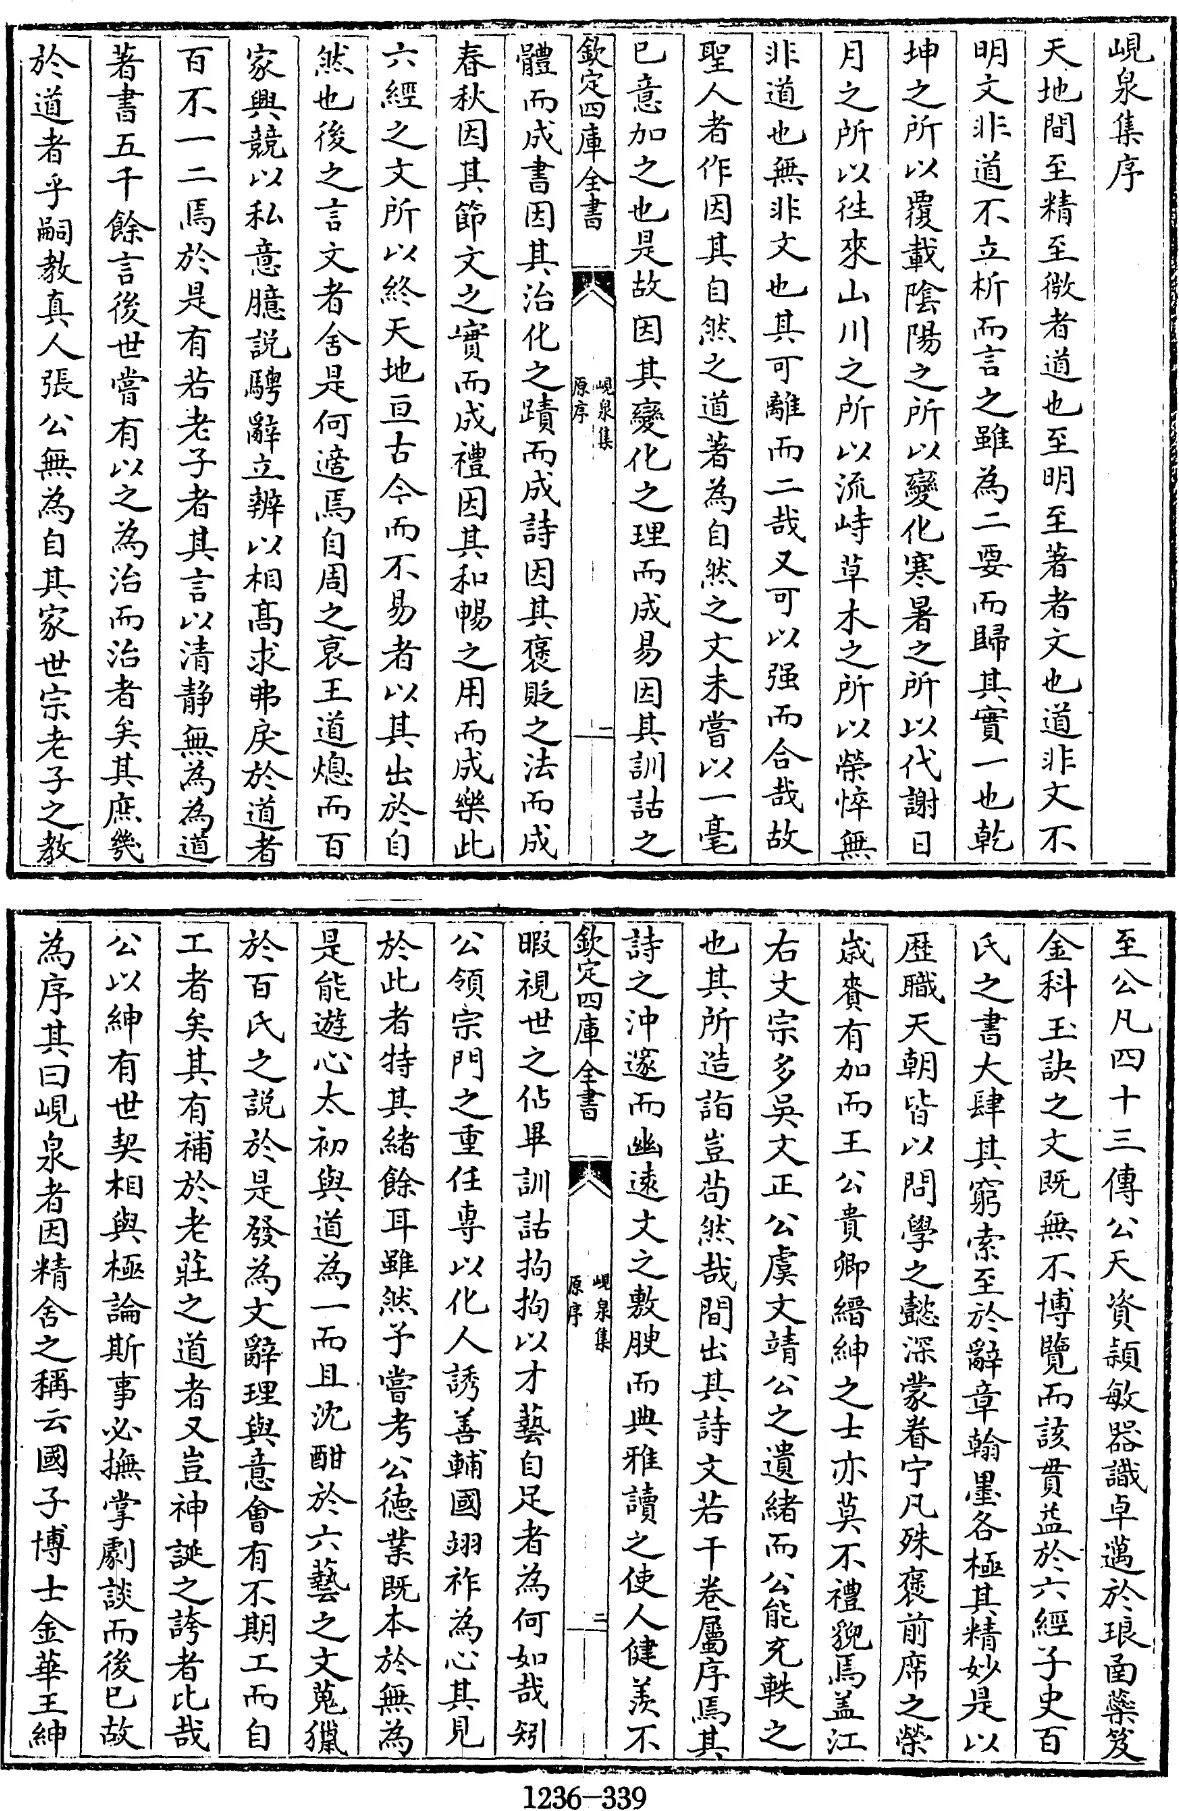 峴泉集序
天地間至精至微者道也至明至著者文也道非文不
明文非道不立析而言之雖為二要而歸其實一也乾
坤之所以覆載陰陽之所以變化寒暑之所以代謝日
月之所以徃來山川之所以流峙草木之所以榮悴無
非道也無非文也其可離而二哉又可以强而合哉故
聖人者作因其自然之道著為自然之文未嘗以一毫
已意加之也是故因其變化之理而成易因其訓詁之
欽定四庫全書
峴泉集
原序
一
體而成書因其治化之蹟而成詩因其褒貶之法而成
春秋因其節文之實而成禮因其和暢之用而成樂此
六經之文所以終天地亘古今而不易者以其出於自
然也後之言文者舍是何適焉自周之衰王道熄而百
家興競以私意臆說騁辭立辨以相髙求弗戾於道者
百不一二焉於是有若老子者其言以清静無為為道
著書五千餘言後世嘗有以之為治而治者矣其庶幾
於道者乎嗣教真人張公無為自其家世宗老子之教
至公凡四十三傳公天資頴敏器識卓邁於琅函蘂笈
金科玉訣之文既無不博覽而該貫益於六經子史百
氏之書大肆其窮索至於辭章翰墨各極其精妙是以
歴職天朝皆以問學之懿深蒙眷宁凡殊褒前席之榮
嵗賚有加而王公貴卿縉紳之士亦莫不禮貌焉盖江
右文宗多吳文正公虞文靖公之遺緒而公能充軼之
也其所造詣豈苟然哉間出其詩文若干卷屬序焉其
詩之沖邃而幽遠文之敷腴而典雅讀之使人健羨不
欽定四庫全書
峴泉集
原序
二
暇視世之佔畢訓詁拘拘以才藝自足者為何如哉矧
公領宗門之重任専以化人誘善輔國翊祚為心其見
於此者特其緒餘耳雖然予嘗考公德業既本於無為
是能遊心太初與道為一而且沈酣於六藝之文蒐獵
於百氏之說於是發為文辭理與意會有不期工而自
工者矣其有補於老莊之道者又豈神誕之誇者比哉
公以紳有世契相與極論斯事必撫掌劇談而後已故
為序其曰峴泉者因精舍之稱云國子博士金華王紳
1236-339